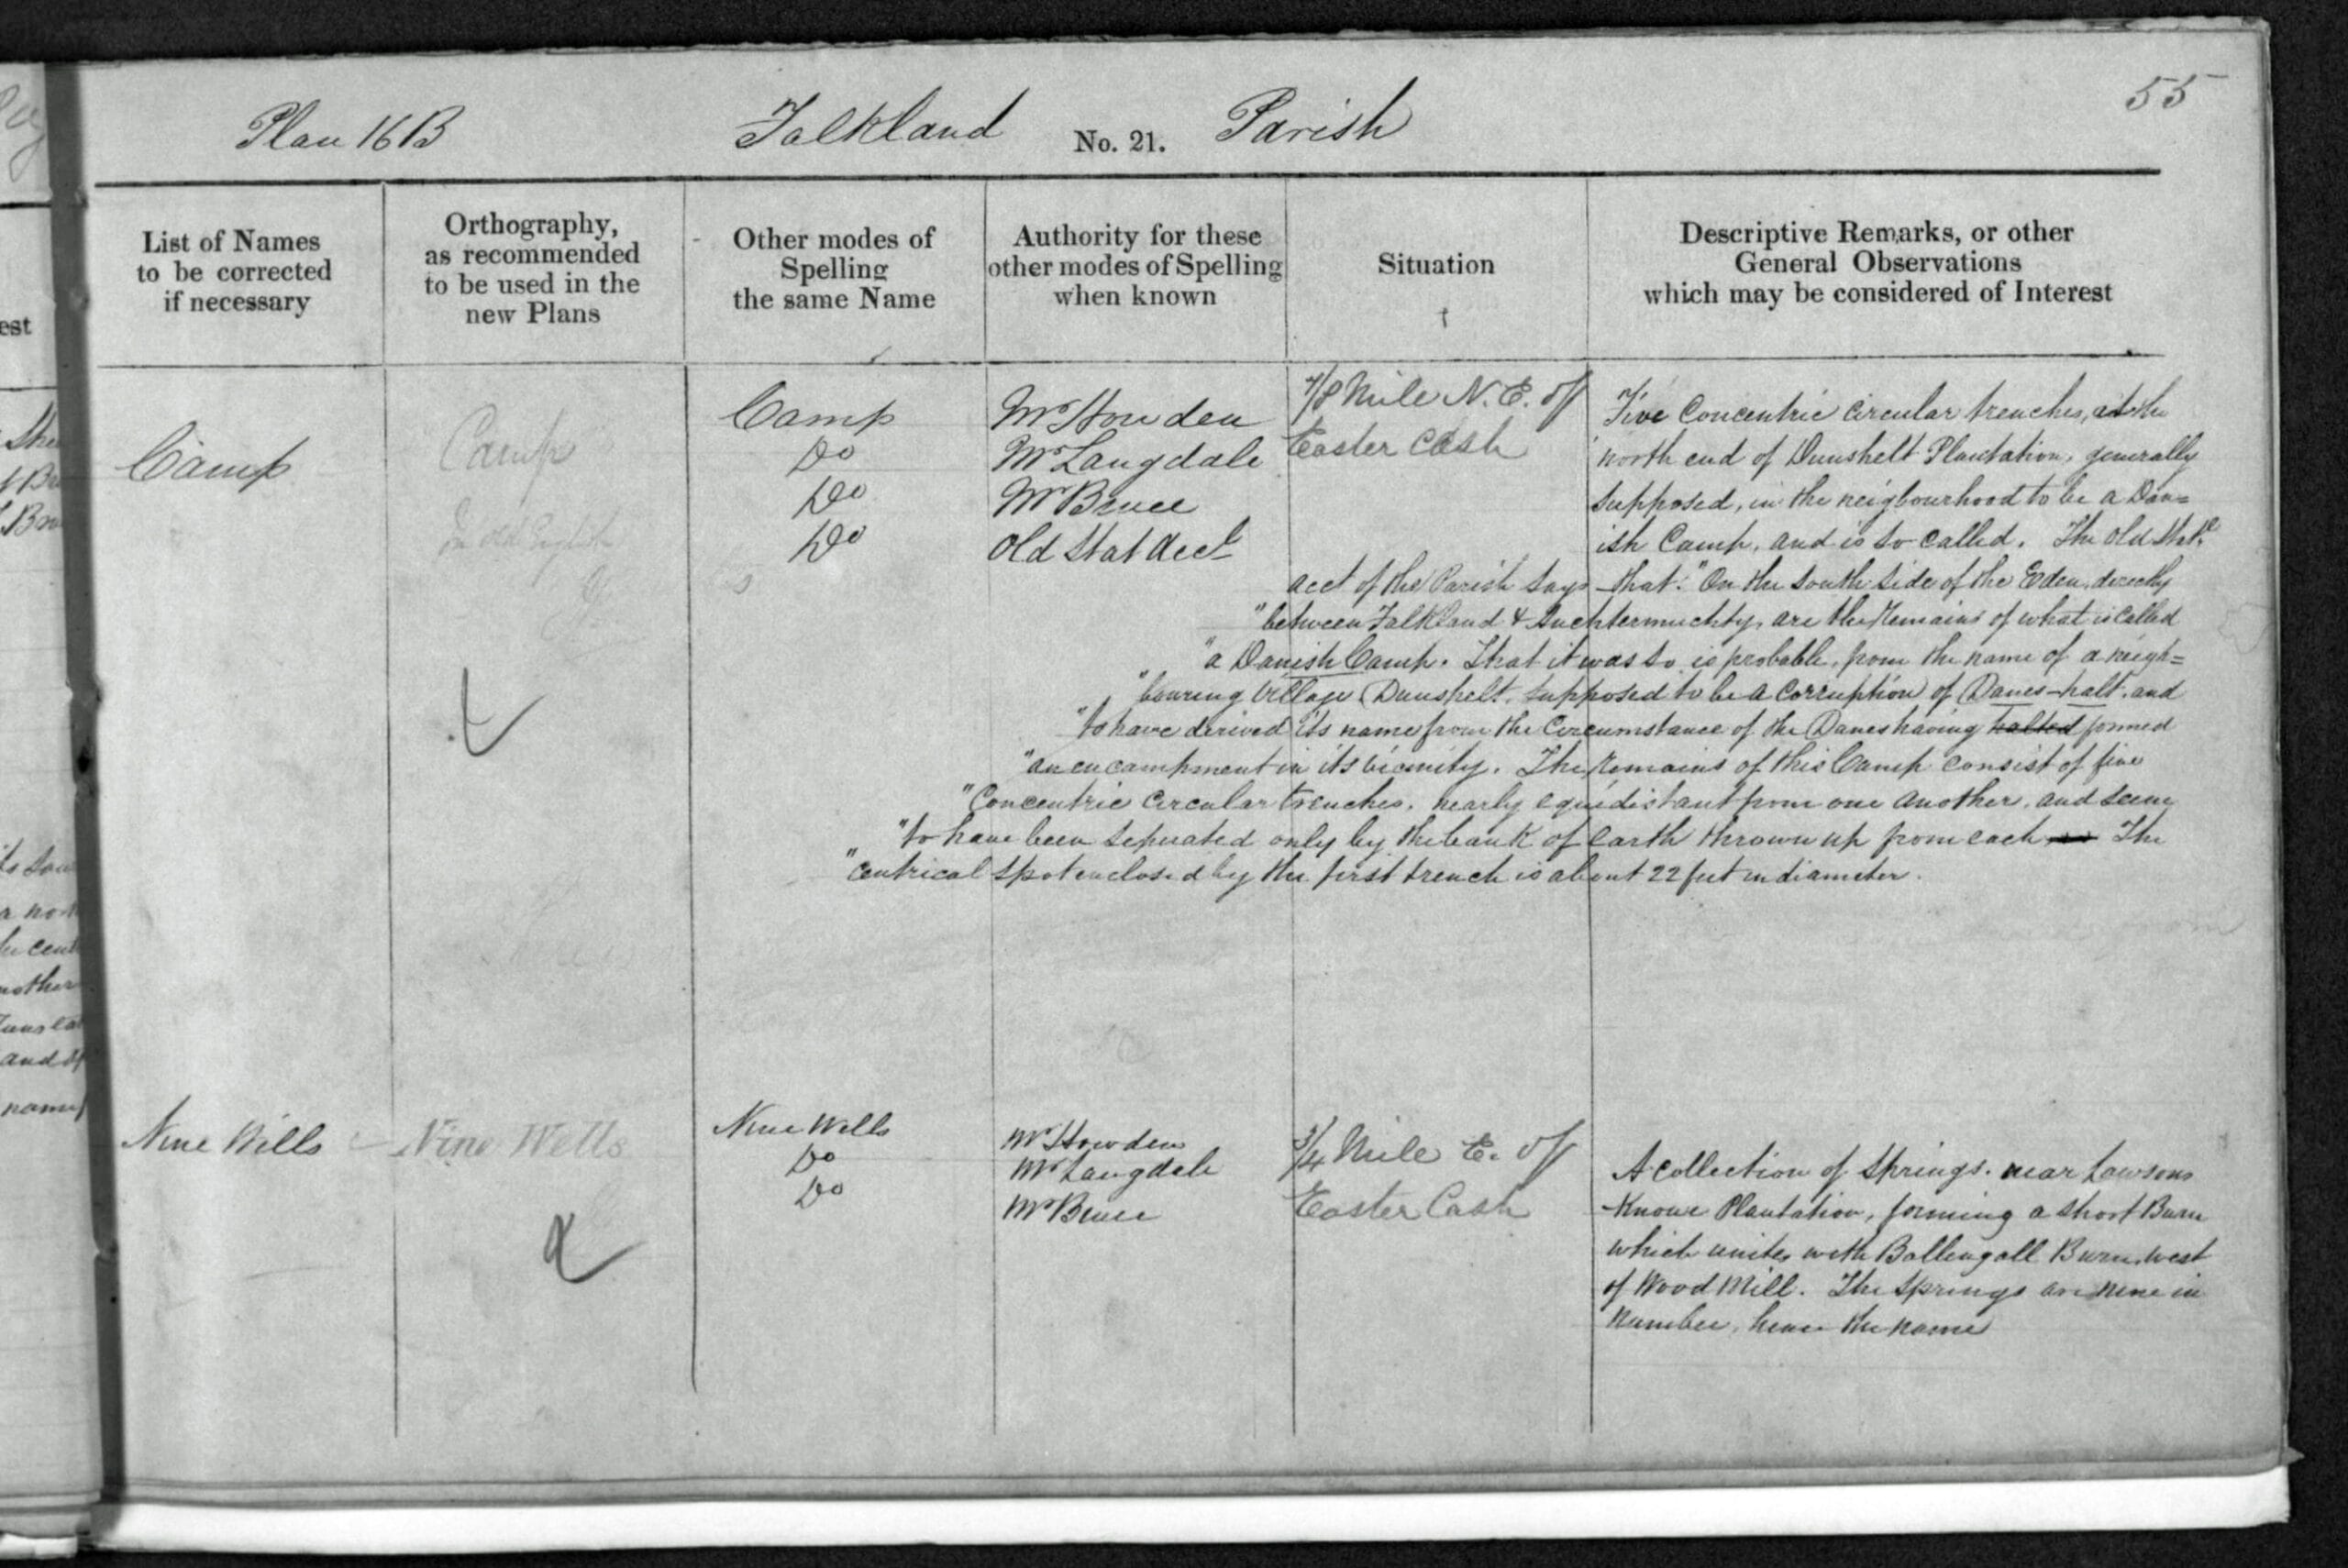 55
Plan 16B Falkland No. 21. Parish
List of Names
to be corrected
if necessary
Orthography,
as recommended
to be used in the
new Plans
Other modes of
Spelling
the same Name
Authority for these
other modes of Spelling
when known
Situation
Descriptive Remarks, or other
General Observations
which may be considered of Interest
Camp
Camp
In old English
Camp
Do
Do
Do
Mr Howden
Mr Langdale
Mr Bruce
Old Stat Acct
7/8 Mile N.E. of
Easter Cash
Five Concentric Circular trenches, at the
north end of Dunshelt Plantation, generally
supposed, in the neigbourhood to be a Dan=
ish Camp, and is so called. The Old Statl
acct of the Parish says that: "On the South Side of the Eden, directly
"between Falkland & Auchtermuchty, are the Remains of what is called
"a Danish Camp. That it was so is probable, from the name of a neigh=
"bouring Village Dunshelt, supposed to be a corruption of Danes-halt, and
"to have derived its name from the Circumstance of the Danes having halted formed
"an encampment in its vicinity. The Remains of this Camp consist of five
"Concentric Circular trenches, nearly equidistant from one another, and seem
"to have been seperated only by the bank of earth thrown up from each The
"centrical spot enclosed by the first trench is about 22 feet in diameter.
Nine Wells
Nine Wells
Nine Wells
Do
Do
Mr Howden
Mr Langdale
Mr Bruce
3/4 Mile E. of
Easter Cash
A collection of Springs. near Lawsons
Knowe Plantation, forming a short Burn
which unites with Ballengall Burn, west
of Wood Mill. The Springs are nine in
Number, hence the name